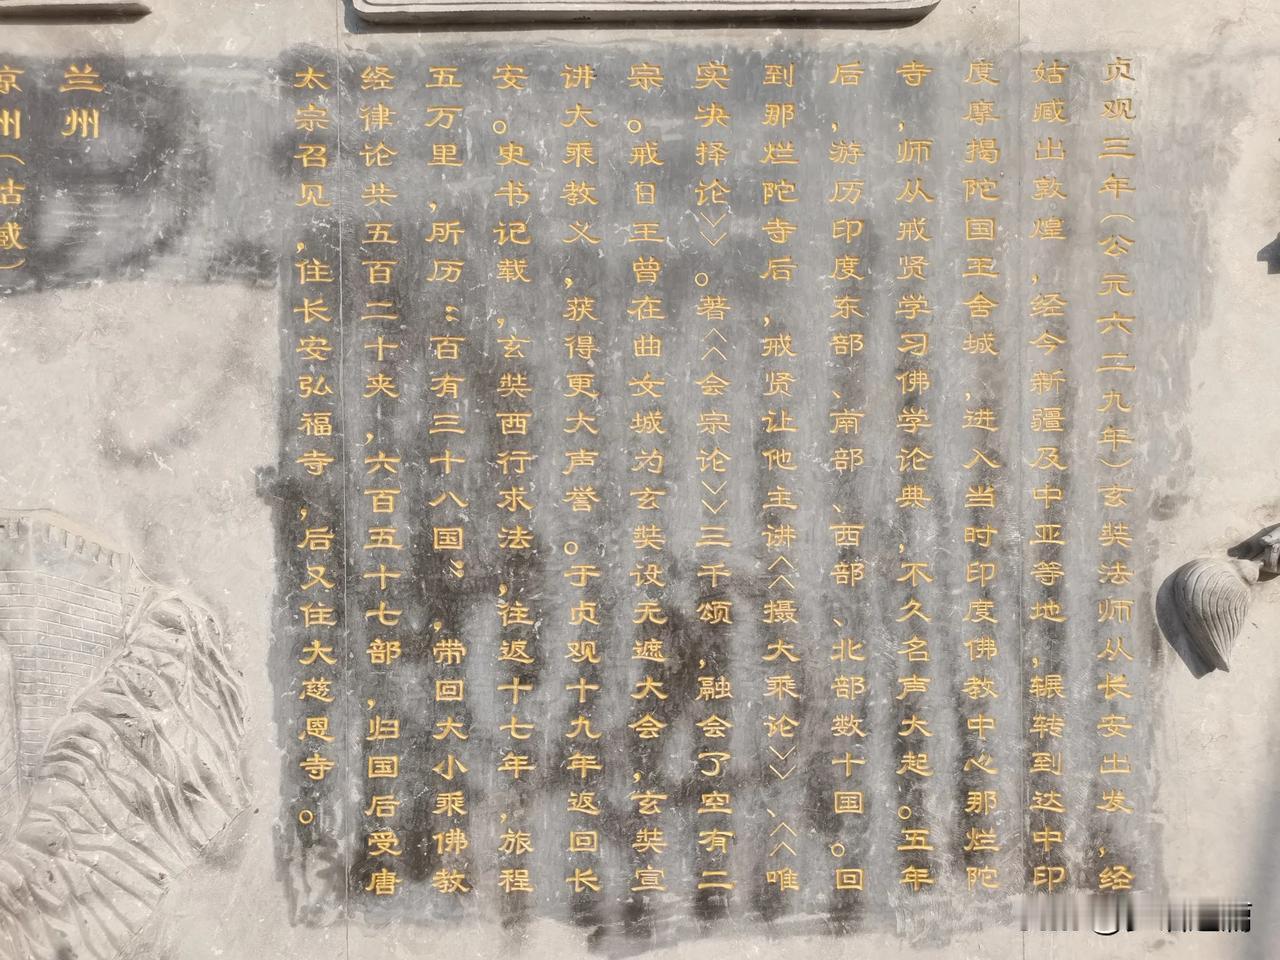 贞观三年（公元六二九年）玄奘法师从长安出发，经
姑臧出敦煌，经今新疆及中亚等地，辗转到达中印
度摩揭陀国王舍城，进入当时印度佛教中心那烂陀
寺，师从戒贤学习佛学论典，不久名声大起。五年
后，游历印度东部、南部、西部、北部数十国。回
到那烂陀寺后，戒贤让他主讲《摄大乘论》、《唯
实决择论》。著《会宗论》三千颂，融会了空有二
宗。戒日王曾在曲女城为玄奘设无遮大会，玄奘宣
讲大乘教义，获得更大声誉。于贞观十九年返回长
安。史书记载，玄奘西行求法，往返十七年，旅程
五万里，所历：百有三十八国；，带回大小乘佛教
经律论共五百二十夹，六百五十七部，归国后受唐
太宗召见，住长安弘福寺，后又住大慈恩寺。
兰州
凉州（姑臧）